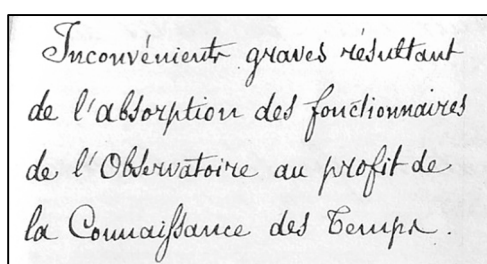 Inconvénients graves résultant
de l'absorption des fonctionnaires
de l'Observatoire au profit de
la Connaissance des Temps.